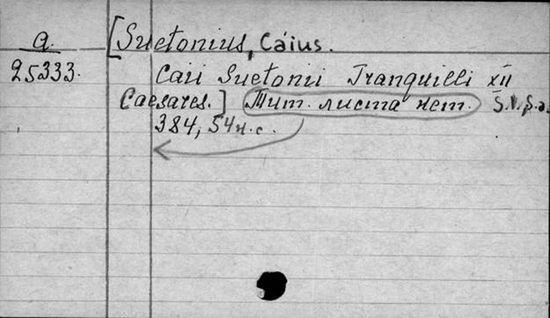 a.
25333.
[Suetonius, Cáius.
Caii Suetonii Tranquilli XII
Caesares.] Тит. листа нет. S.l., S.a.
384, 54 н.с.